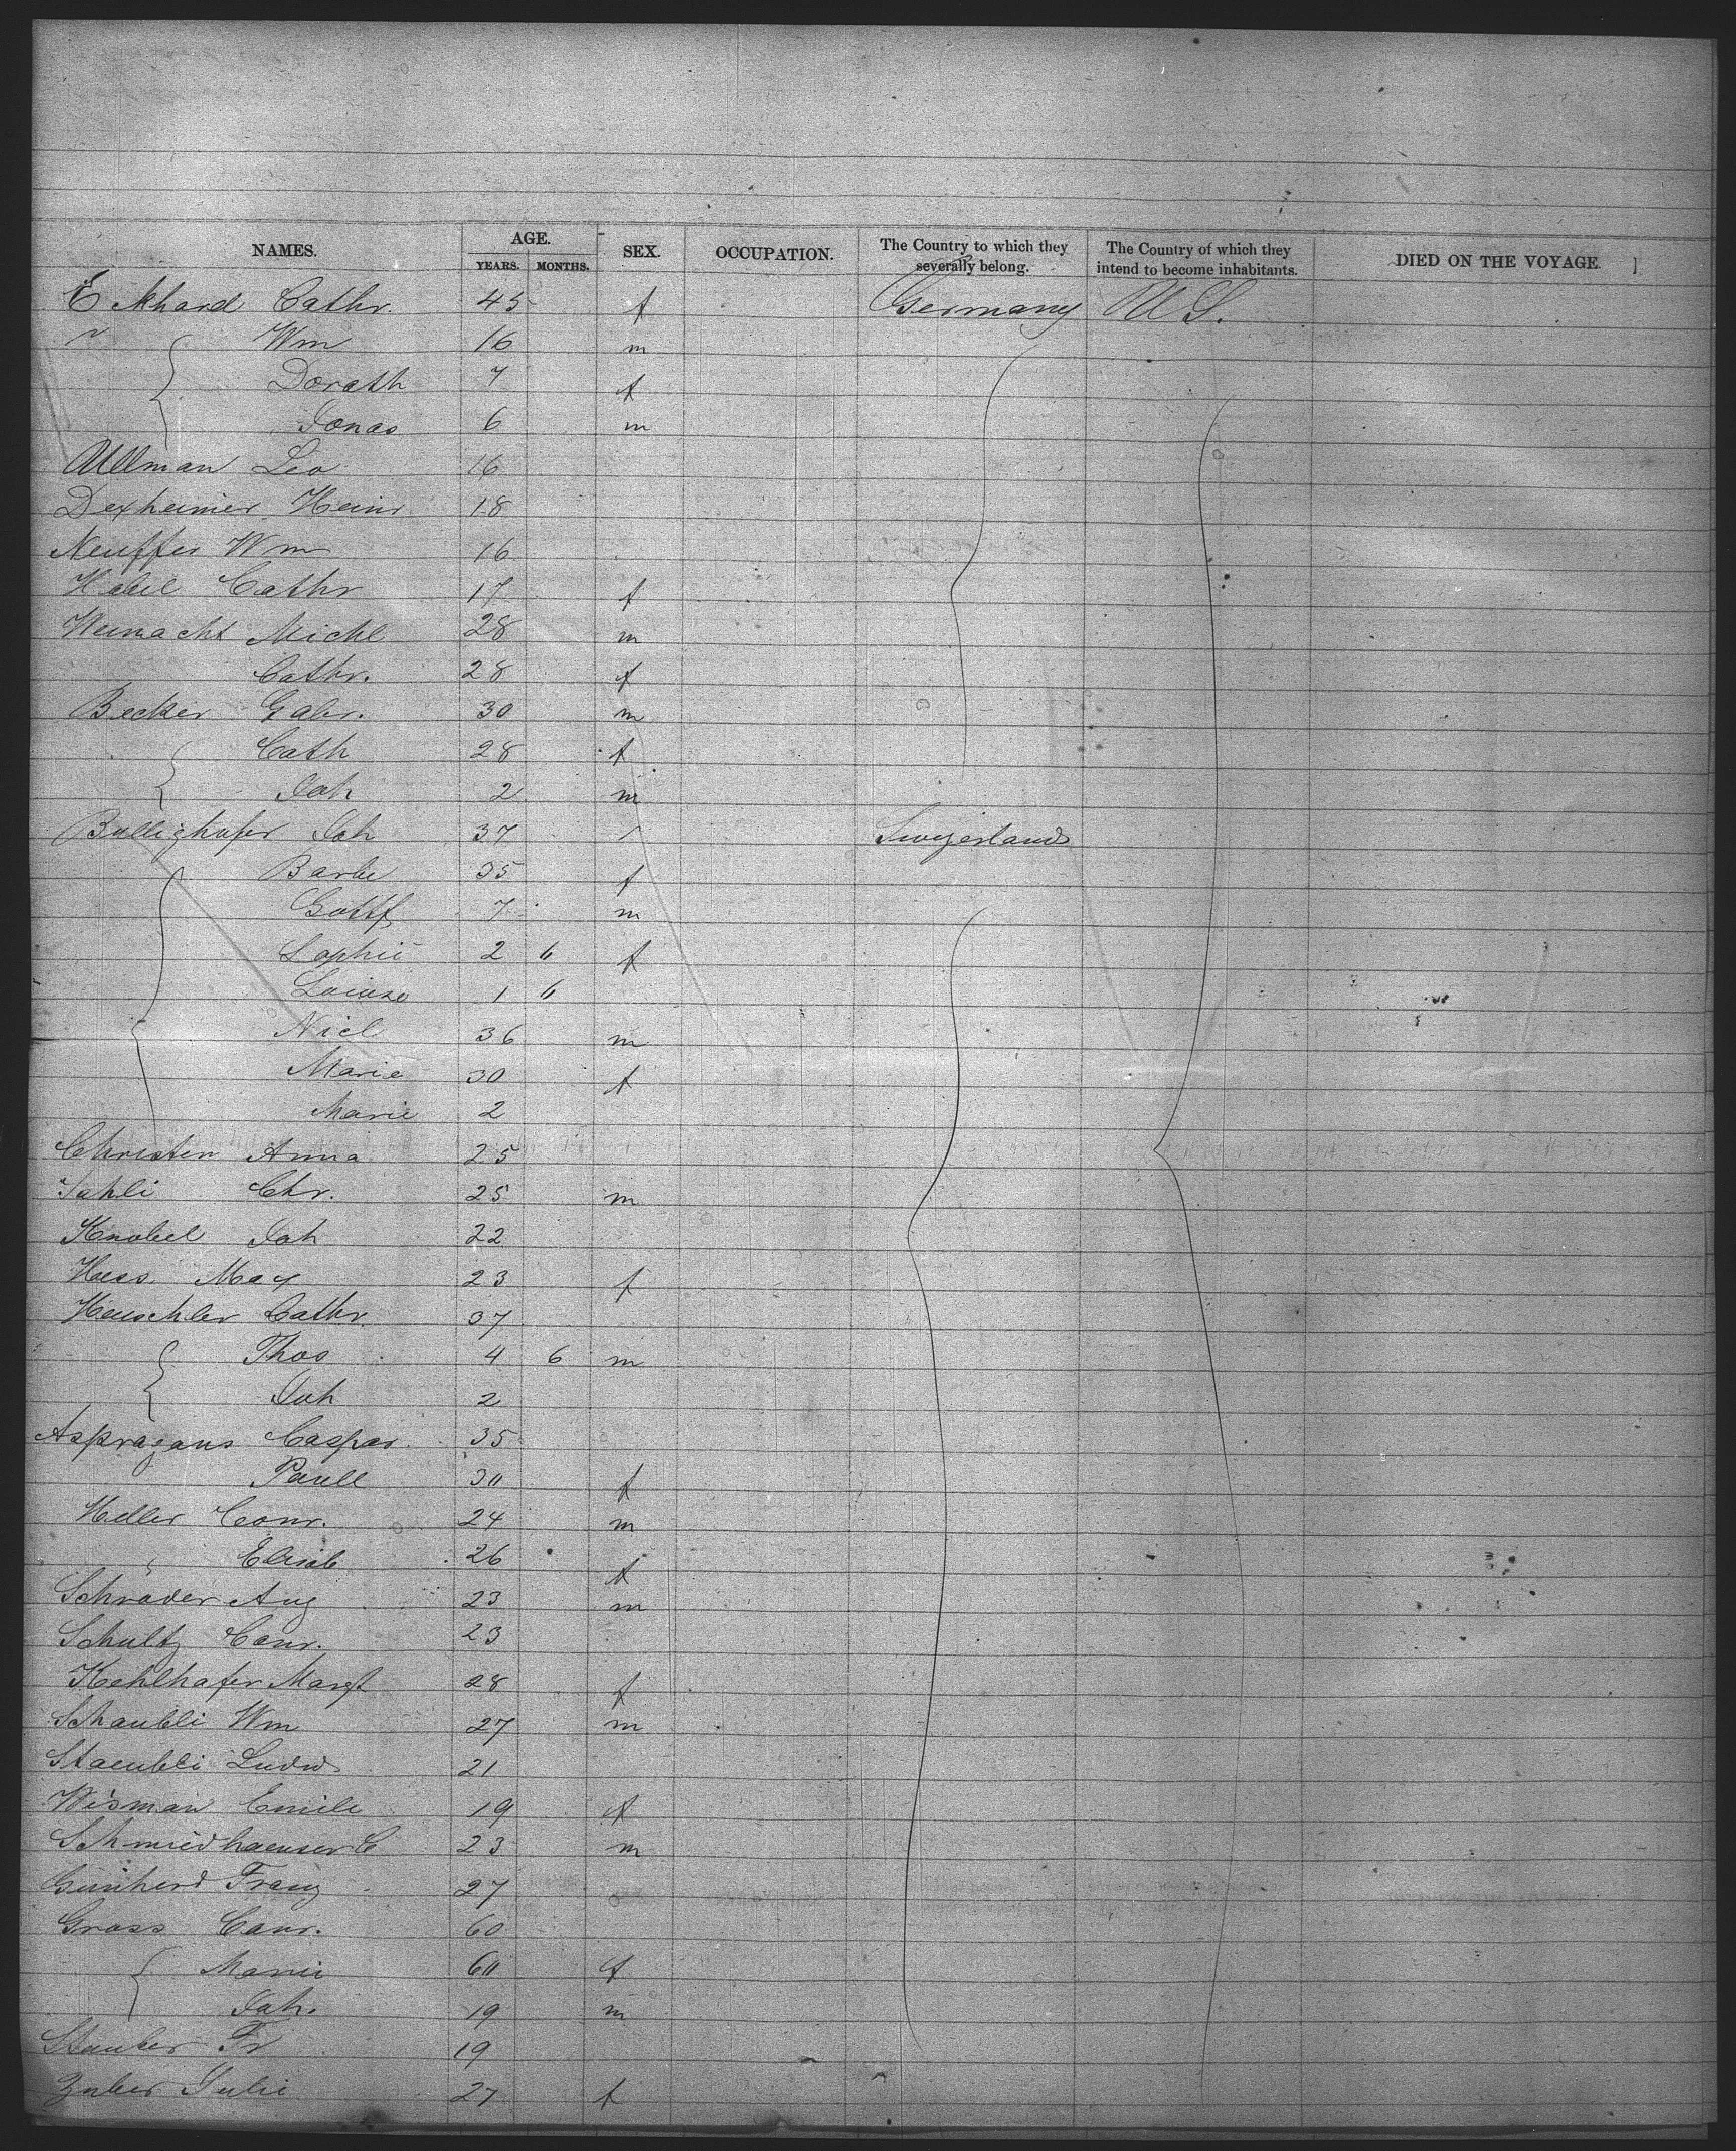 NAMES. AGE. SEX. OCCUPATION. The Country to which they severally belong. The Country of which they intend to become inhabitants. DIED ON THE VOYAGE.
YEARS. MONTHS.
Eckhard Cathr. 45 f Germany U S.
" Wm 16 m
Dorath 7 f
Jonas 6 m
Ullman Leo 16
Dexheimer Heinr 18
Neuffer Wm 16
Habel Cathr 17 f
Weinacht Michl 28 m
Cathr. 28 f
Becker Gabr. 30 m
Cath 28 f
Joh 2 m
Bullighofer Joh 37 Swizerland
Barbe 35 f
Gottf 7 m
Sophie 2 6 f
Louise 1 6
Nicl 36 m
Marie 30 f
Marie 2
Christen Anna 25
Sahli Chr. 25 m
Knobel Joh 22
Hess. May 23 f
Heuschler Cathr. 37
Thos 4 6 m
Joh 2
Aspragans Caspar. 35
Paull 30 f
Heller Conr. 24 m
Elisab 26 f
Schrader Aug 23 m
Schultz Conr. 23
Kehlhafer Margt 28 f
Schaubli Wm 27 m
Staeubli Ludw 21
Wisman Emile 19 f
Schmiedhaeuser C 23 m
Franz 27
Gross Conr. 60
Marie 60 f
Joh. 19 m
Stauber Fr 19
Zuber Julie 27 f